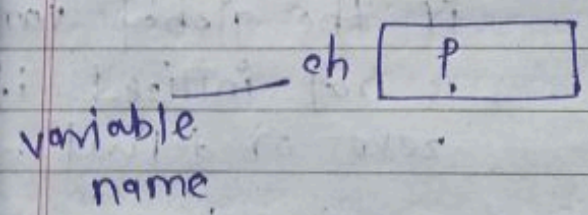 ch P
variable
name